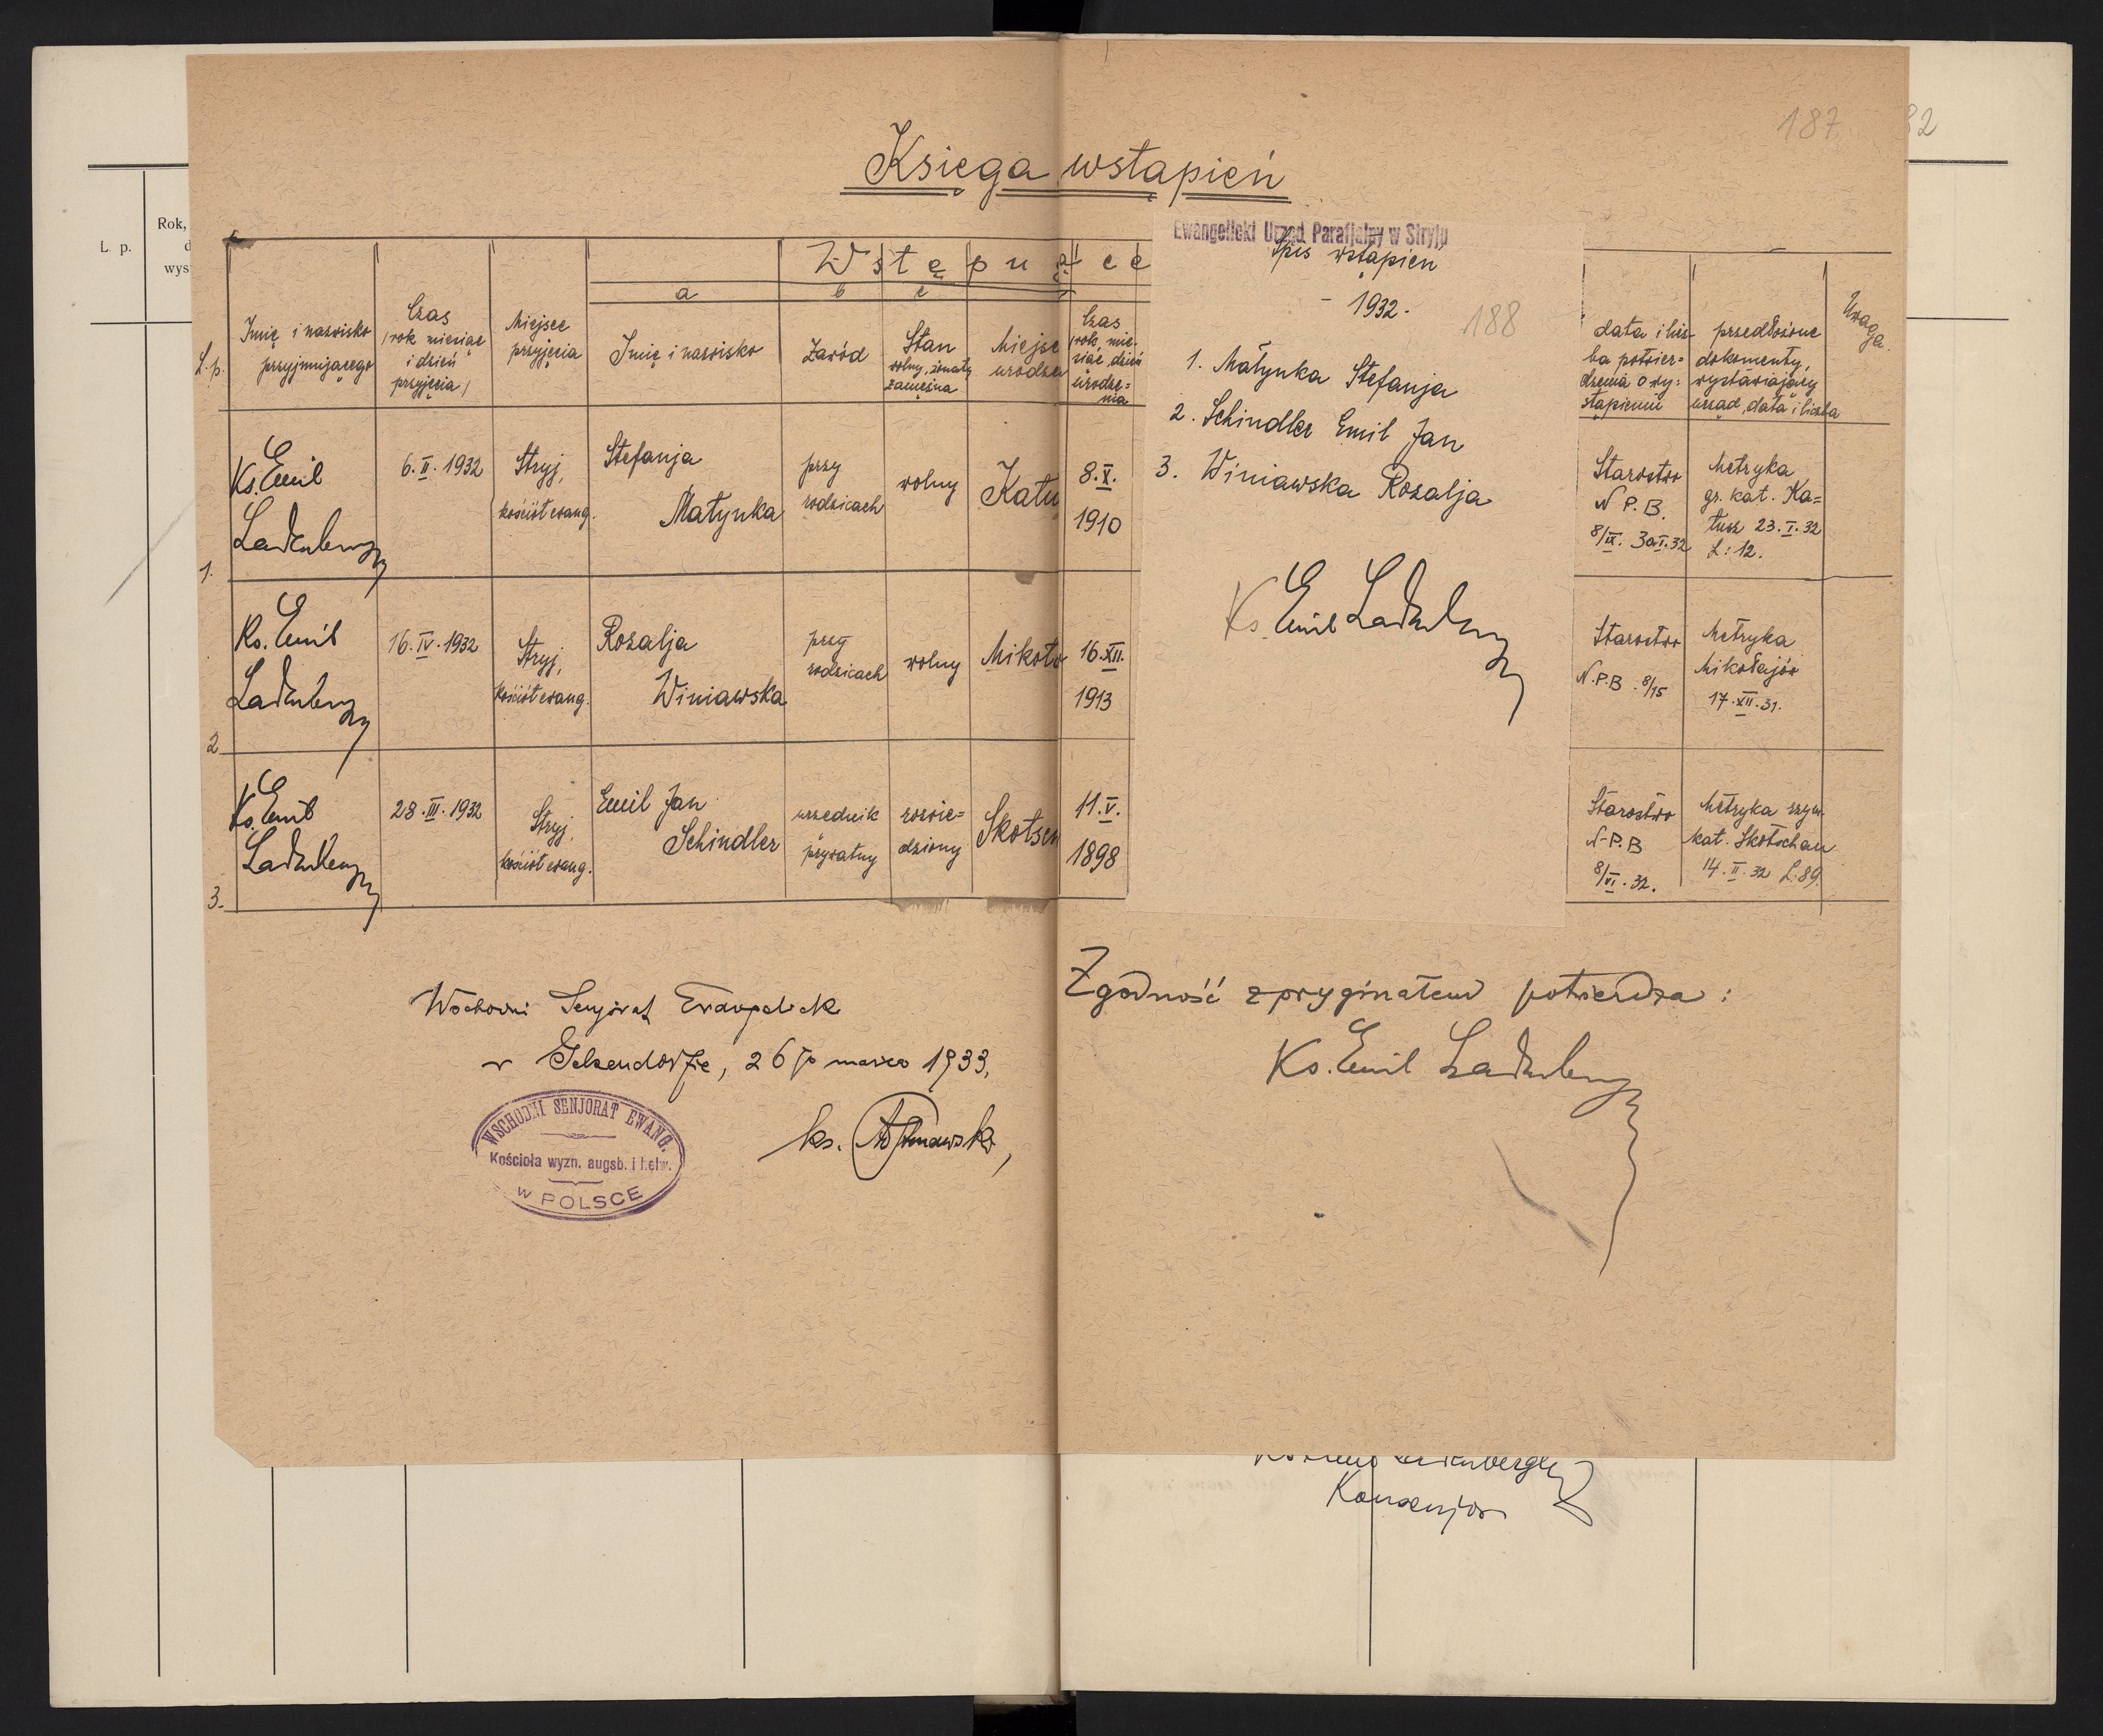 187
82
Księga wstąpień
L. p.
Rok,
d
wys
Wstępujące
a
b
c
L.p.
Imię i nazwisko
przyjmującego
Czas
/rok miesiąc
i dzień
przyjęcia/
Miejsce
przyjęcia
Imię i nazwisko
Zawód
Stan
wolny, żonaty
zamężna
Miejsc
urodze
Czas
rok, mie-
siąc, dzień
urodze=
nia
data i licz-
ba potwier=
dzenia o wy=
stąpieniu
przedłożone
dokumenty,
wystawiający
urząd, data i liczba
Uwaga.
1.
Ks. Emil
Ladenberger
6. II. 1932
Stryj,
kościół ewang.
Stefanja
Małynka
przy
rodzicach
wolny
Kału
8. X.
1910
Starostwo
N P. B.
8/IX. 30.I.32
Metryka
gr. kat. Ka=
łusz 23. I. 32
L: 12.
2
Ks. Emil
Ladenberger
16. IV. 1932
Stryj,
kościół ewang.
Rozalja
Winiawska
przy
rodzicach
wolny
Mikoło
16. XII.
1913
Starostwo
N. P. B. 8/15
Metryka
Mikołajów
17. XII. 31.
3.
Ks. Emil
Ladenberger
28. III. 1932
Stryj,
kościół ewang.
Emil Jan
Schindler
urzędnik
prywatny
rozwie=
dziony
Skotsch
11. V.
1898
Starostwo
N-P. B
8/VI. 32.
Metryka rzym.
kat. Skotschau
14. II. 32 L: 89.
Ewangelicki Urząd Parafjalny w Stryju
Spis wstąpień
- 1932.
188
1. Małynka Stefanja
2. Schindler Emil Jan
3. Winiawska Rozalja
Ks. Emil Ladenberger
Wschodni Senjorat Ewangelick
w Gelsendorfie, 26go marca 1933,
ks.
WSCHODNI SENJORAT EWANG.
Kościoła wyzn. augsb. i helw.
w POLSCE
Zgodność z oryginałem potwierdza:
Ks. Emil Ladenberger
Konsenjor